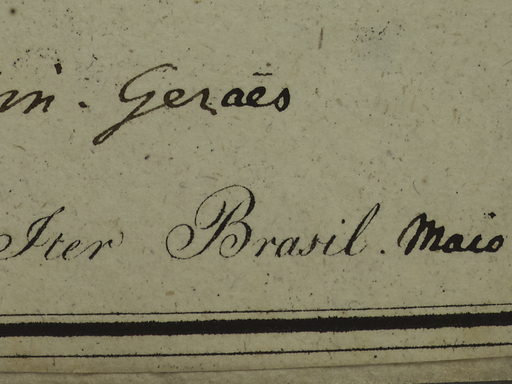 in. Geraēs
Iter Brasil. Maio